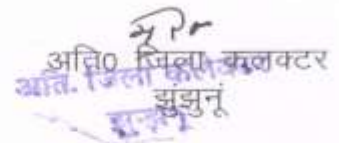 अति0 जिला कलक्टर
झुंझुनूं
अति. जिला कलक्टर
झुन्झुनू